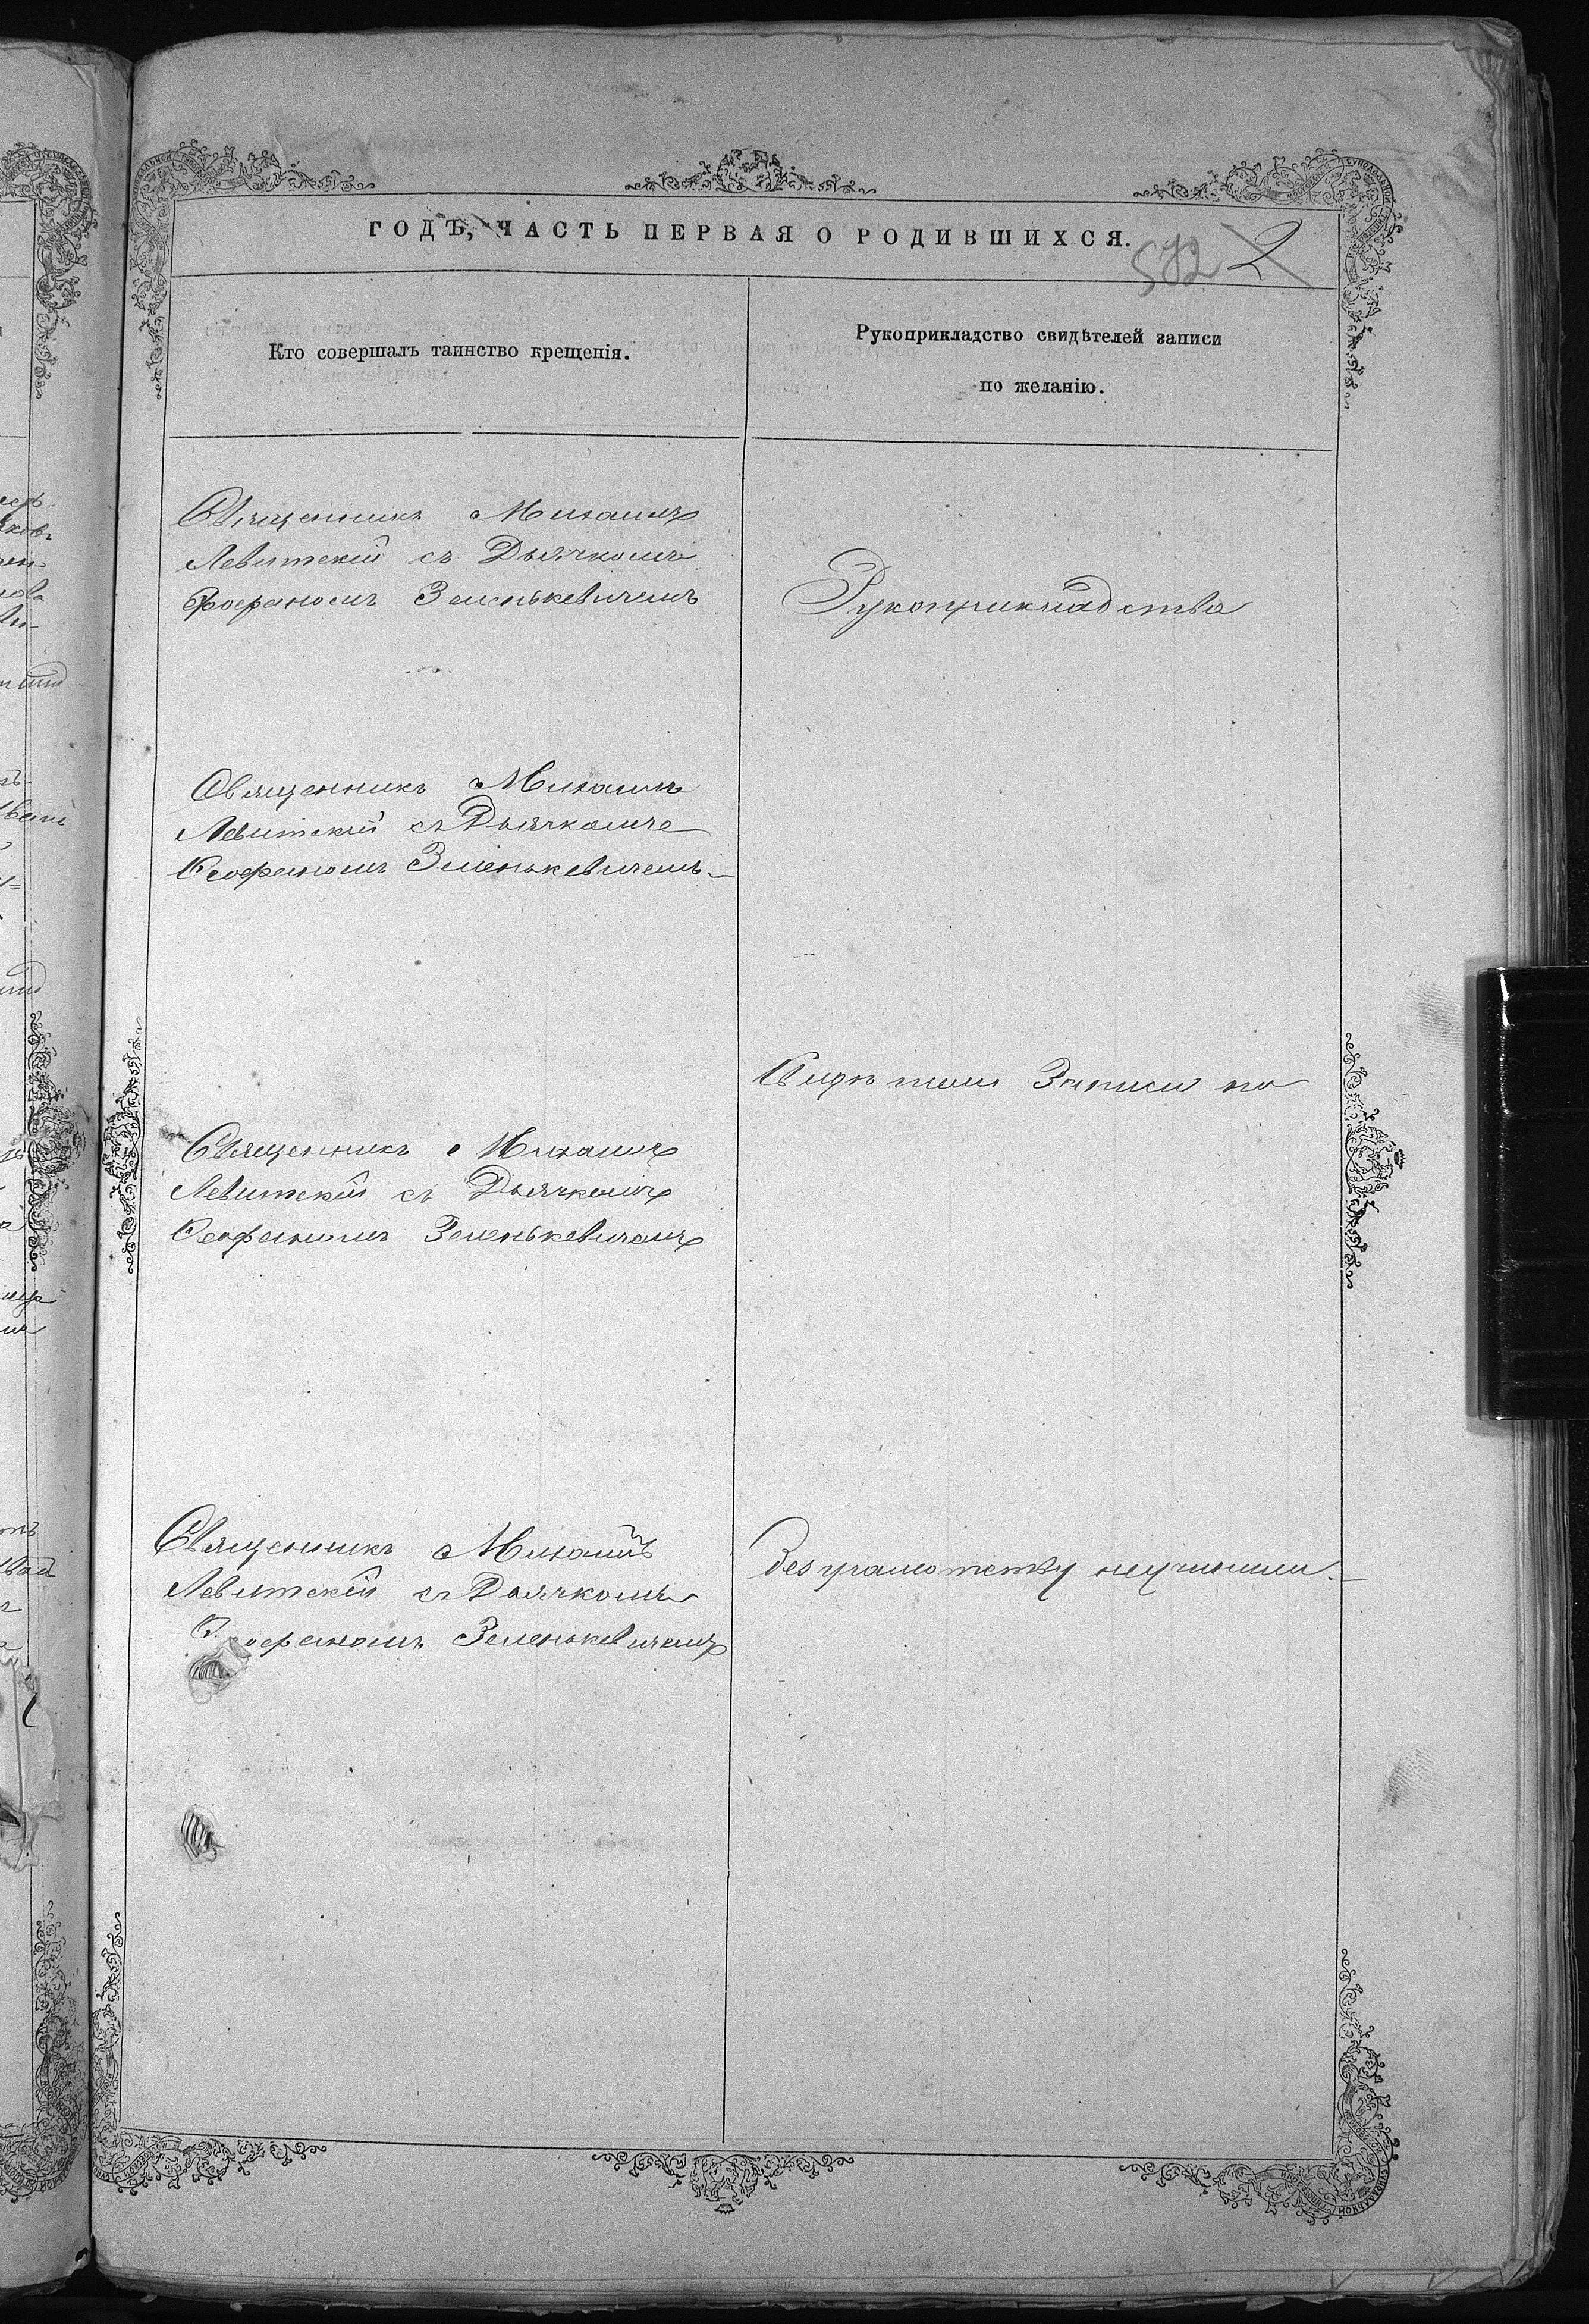 ГОДЪ, ЧАСТЬ ПЕРВАЯ О РОДИВШИХСЯ.
572 2
Кто совершалъ таинство крещенія.
Рукоприкладство свидѣтелей записи
по желанію.
Священникъ Михаилъ
Левитскій съ Дьячкомъ
Феофаномъ Зеленькевичемъ
Рукоприкладства
Священникъ Михаилъ
Левитскій съ Дьячкомъ
Феофаномъ Зеленькевичемъ
Свидѣтели Записи по
Священникъ Михаилъ
Левитскій съ Дьячкомъ
Феофаномъ Зеленькевичемъ
Священникъ Михаилъ
Левитскій съ Дьячкомъ
Феофаномъ Зеленькевичемъ
безграмотству неучинили.